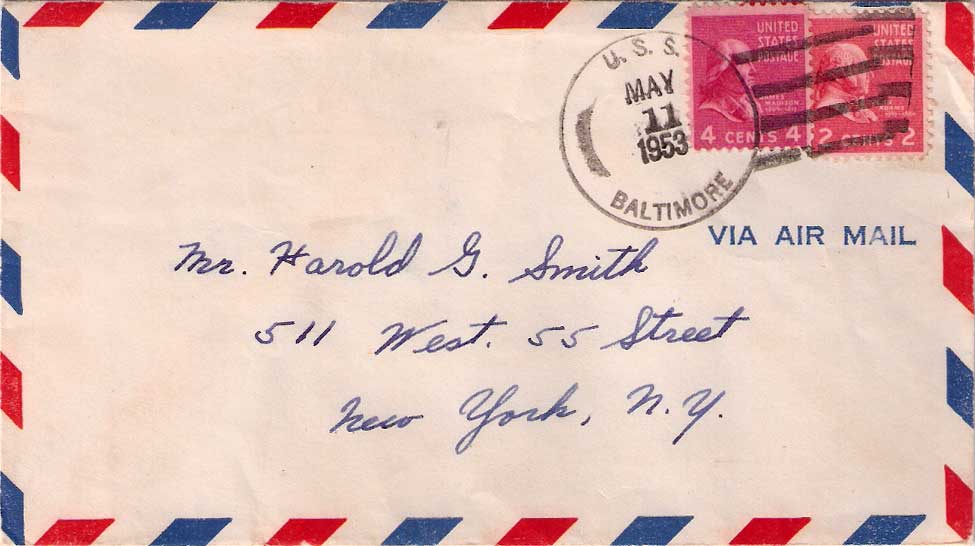 U. S. S.
MAY
11
1953
BALTIMORE
UNITED
STATES
POSTAGE
JAMES
MADISON
4 CENTS 4
UNITED
STATES
POSTAGE
ADAMS
2 CENTS 2
VIA AIR MAIL
Mr. Harold G. Smith
511 West. 55 Street
New York, N.Y.